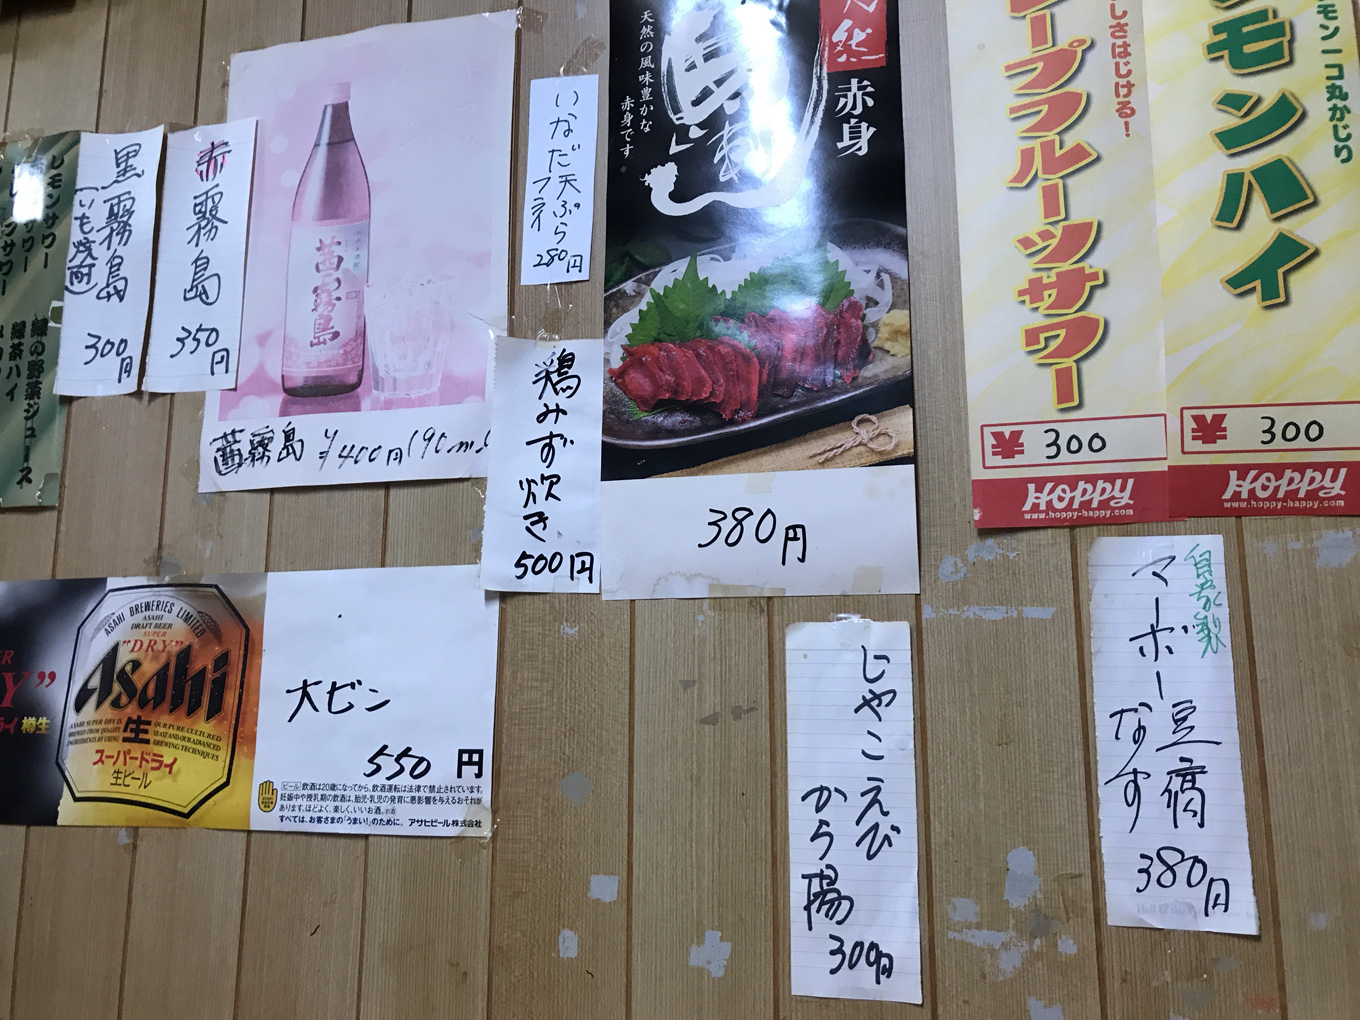 レモンサワー
緑の野菜ジュース
緑茶ハイ
黒霧島
(いも焼酎)
300円
赤霧島
350円
茜霧島
茜霧島 ¥400円(90ml
いなだ天ぷら
フネ
280円
鶏みず炊き
500円
天然の風味豊かな
赤身です。
赤身
380円
しさはじける!
ープフルーツサワー
¥ 300
HOPPY
www.hoppy-happy.com
モン一コ丸かじり
モンハイ
¥ 300
HOPPY
www.hoppy-happy.com
ASAHI BREWERIES LIMITED
ASAHI
DRAFT BEER
SUPER
"DRY"
Asahi
生
ASAHI SUPER DRY IS
BREWED FROM QUALITY
INGREDIENTS BY USING
OUR PURE CULTURED
YEAST AND OUR ADVANCED
BREWING TECHNIQUES
スーパードライ
生ビール
樽生
大ビン
550 円
ビール 飲酒は20歳になってから。飲酒運転は法律で禁止されています。
妊娠中や授乳期の飲酒は、胎児・乳児の発育に悪影響を与えるおそれが
あります。ほどよく、楽しく、いいお酒。
すべては、お客さまの「うまい!」のために。 アサヒビール株式会社
じゃこえび
から陽
300円
自家製
マーボー豆腐
なす
380円